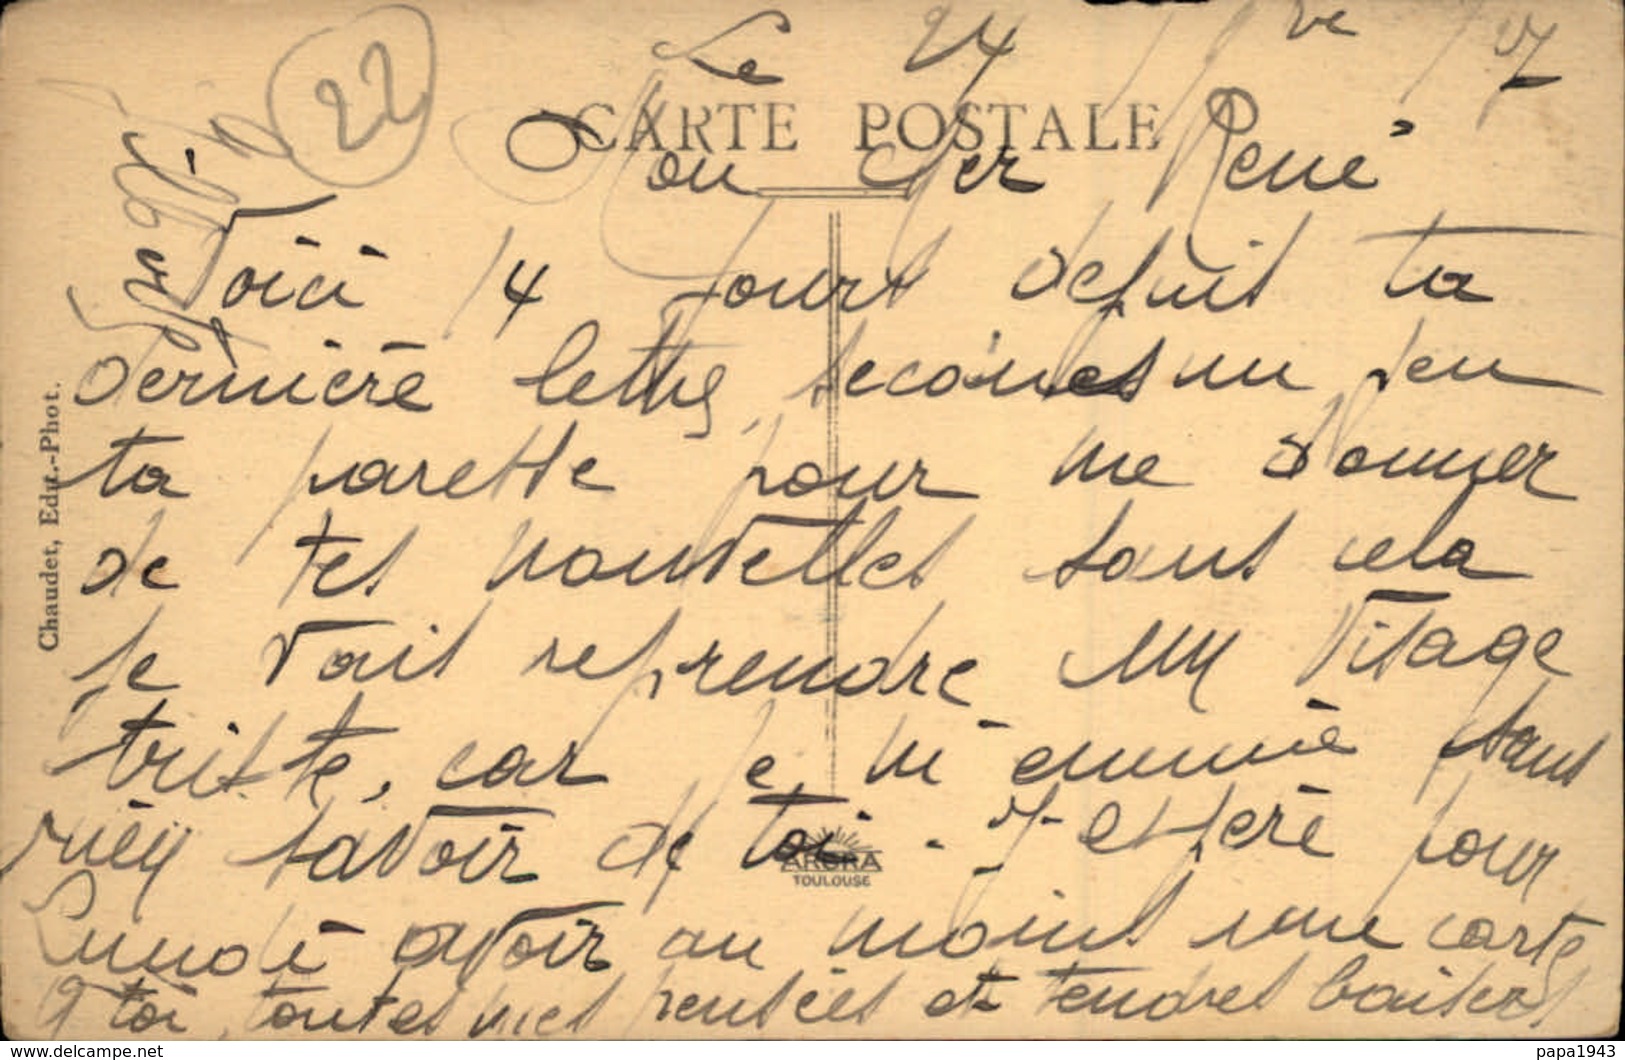 Le 24
22
CARTE POSTALE
Mon cher René
Voici 14 jours depuis ta
dernière lettre, secoues un peu
ta paresse pour me donner
de tes nouvelles sans cela
je vais reprendre mon visage
triste, car je m'ennuie sans
rien savoir de toi. J'espère pour
Lundi avoir au moins une carte
à toi, toutes mes pensées et tendres baisers
ARURA
TOULOUSE
Chaudet, Edit.-Phot.
https://www.delcampe.net
papa1943